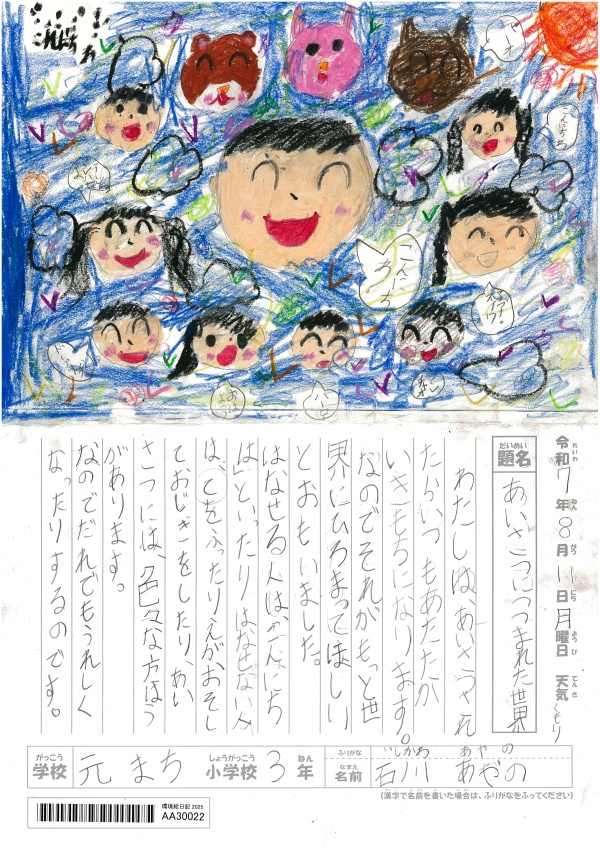 こんにちは
こんにちは
令和7年8月11日月曜日 天気くもり
れいわ ねん がつ にち ようび てんき
だいめい
題名 あいさつにつつまれた世界
わたしは、あいさつされ
たらいつもあたたか
いきもちになります。
なのでそれがもっと世
界にひろまってほしい
とおもいました。
はなせる人は、こんにち
は」といったりはなせない人
は、てをふったりえがおそし
ておじぎをしたり、あい
さつには、色々な方ほう
があります。
なのでだれでもうれしく
なったりするのです。
がっこう しょうがっこう ねん ふりがな いしかわ あやの
学校 元まち 小学校 3年 なまえ 名前 石川 あやの
(漢字で名前を書いた場合は、ふりがなをふってください)
環境絵日記 2025
AA30022